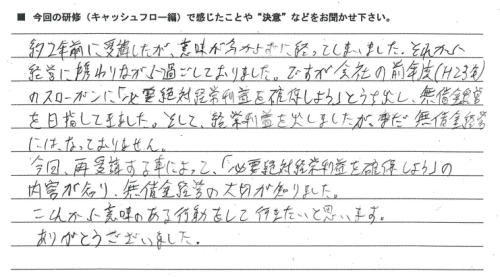 ■ 今回の研修（キャッシュフロー編）で感じたことや“決意”などをお聞かせ下さい。
約2年前に受講したが、意味が分からずに終ってしまいました。それから
経営に携わりながら過ごしておりました。ですが会社の前年度(H23年)
のスローガンに「必要絶対経常利益を確保しよう」とうち出し、無借金経営
を目指してきました。そして、経常利益を出しましたが、まだ無借金経営
にはなっておりません。
今回、再受講する事によって、「必要絶対経常利益を確保しよう」の
内容が知り、無借金経営の大切が知りました。
これから意味のある行動をして行きたいと思います。
ありがとうございました。